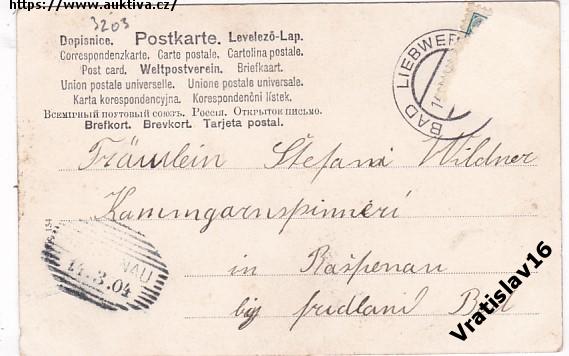 https://www.auktiva.cz/
3203
Dopisnice. Postkarte. Levelező-Lap.
Correspondenzkarte. Carte postale. Cartolina postale.
Post card. Weltpostverein. Briefkaart.
Union postale universelle. Unione postale universale.
Karta korespondencyjna. Korespondenční lístek.
Всемірный почтовый союзъ. Россія. Открытое письмо.
Brefkort. Brevkort. Tarjeta postal.
BAD LIEBWER
Fräulein Štefani Wildner
Kammgarnspinneri
in Rašpenau
bij fridland
NAU
11.3.04
Vratislav16